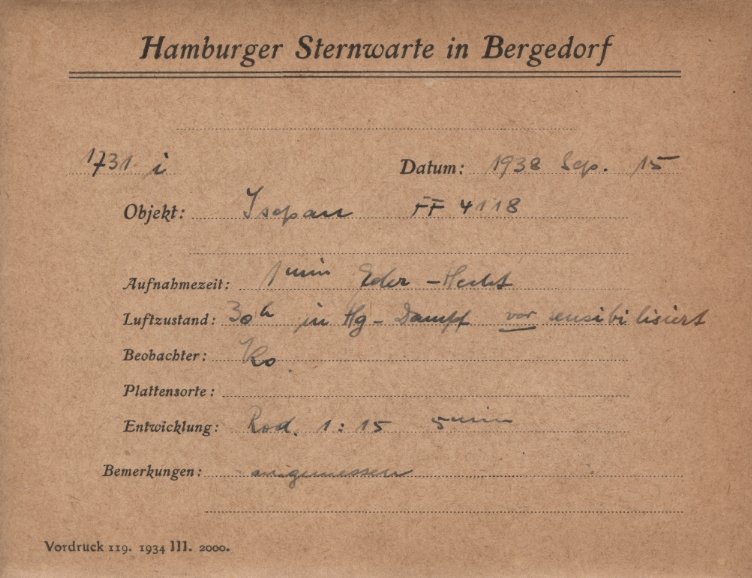 Hamburger Sternwarte in Bergedorf
1731 i Datum: 1938 Sep. 15
Objekt: Isopan FF 4118
Aufnahmezeit: 1 min Eder-Hecht
Luftzustand: 30 h in Hg-Dampf vor sensibilisiert
Beobachter: Ko
Plattensorte:
Entwicklung: Rod. 1:15 5 min
Bemerkungen: angemessen
Vordruck 119. 1934 III. 2000.